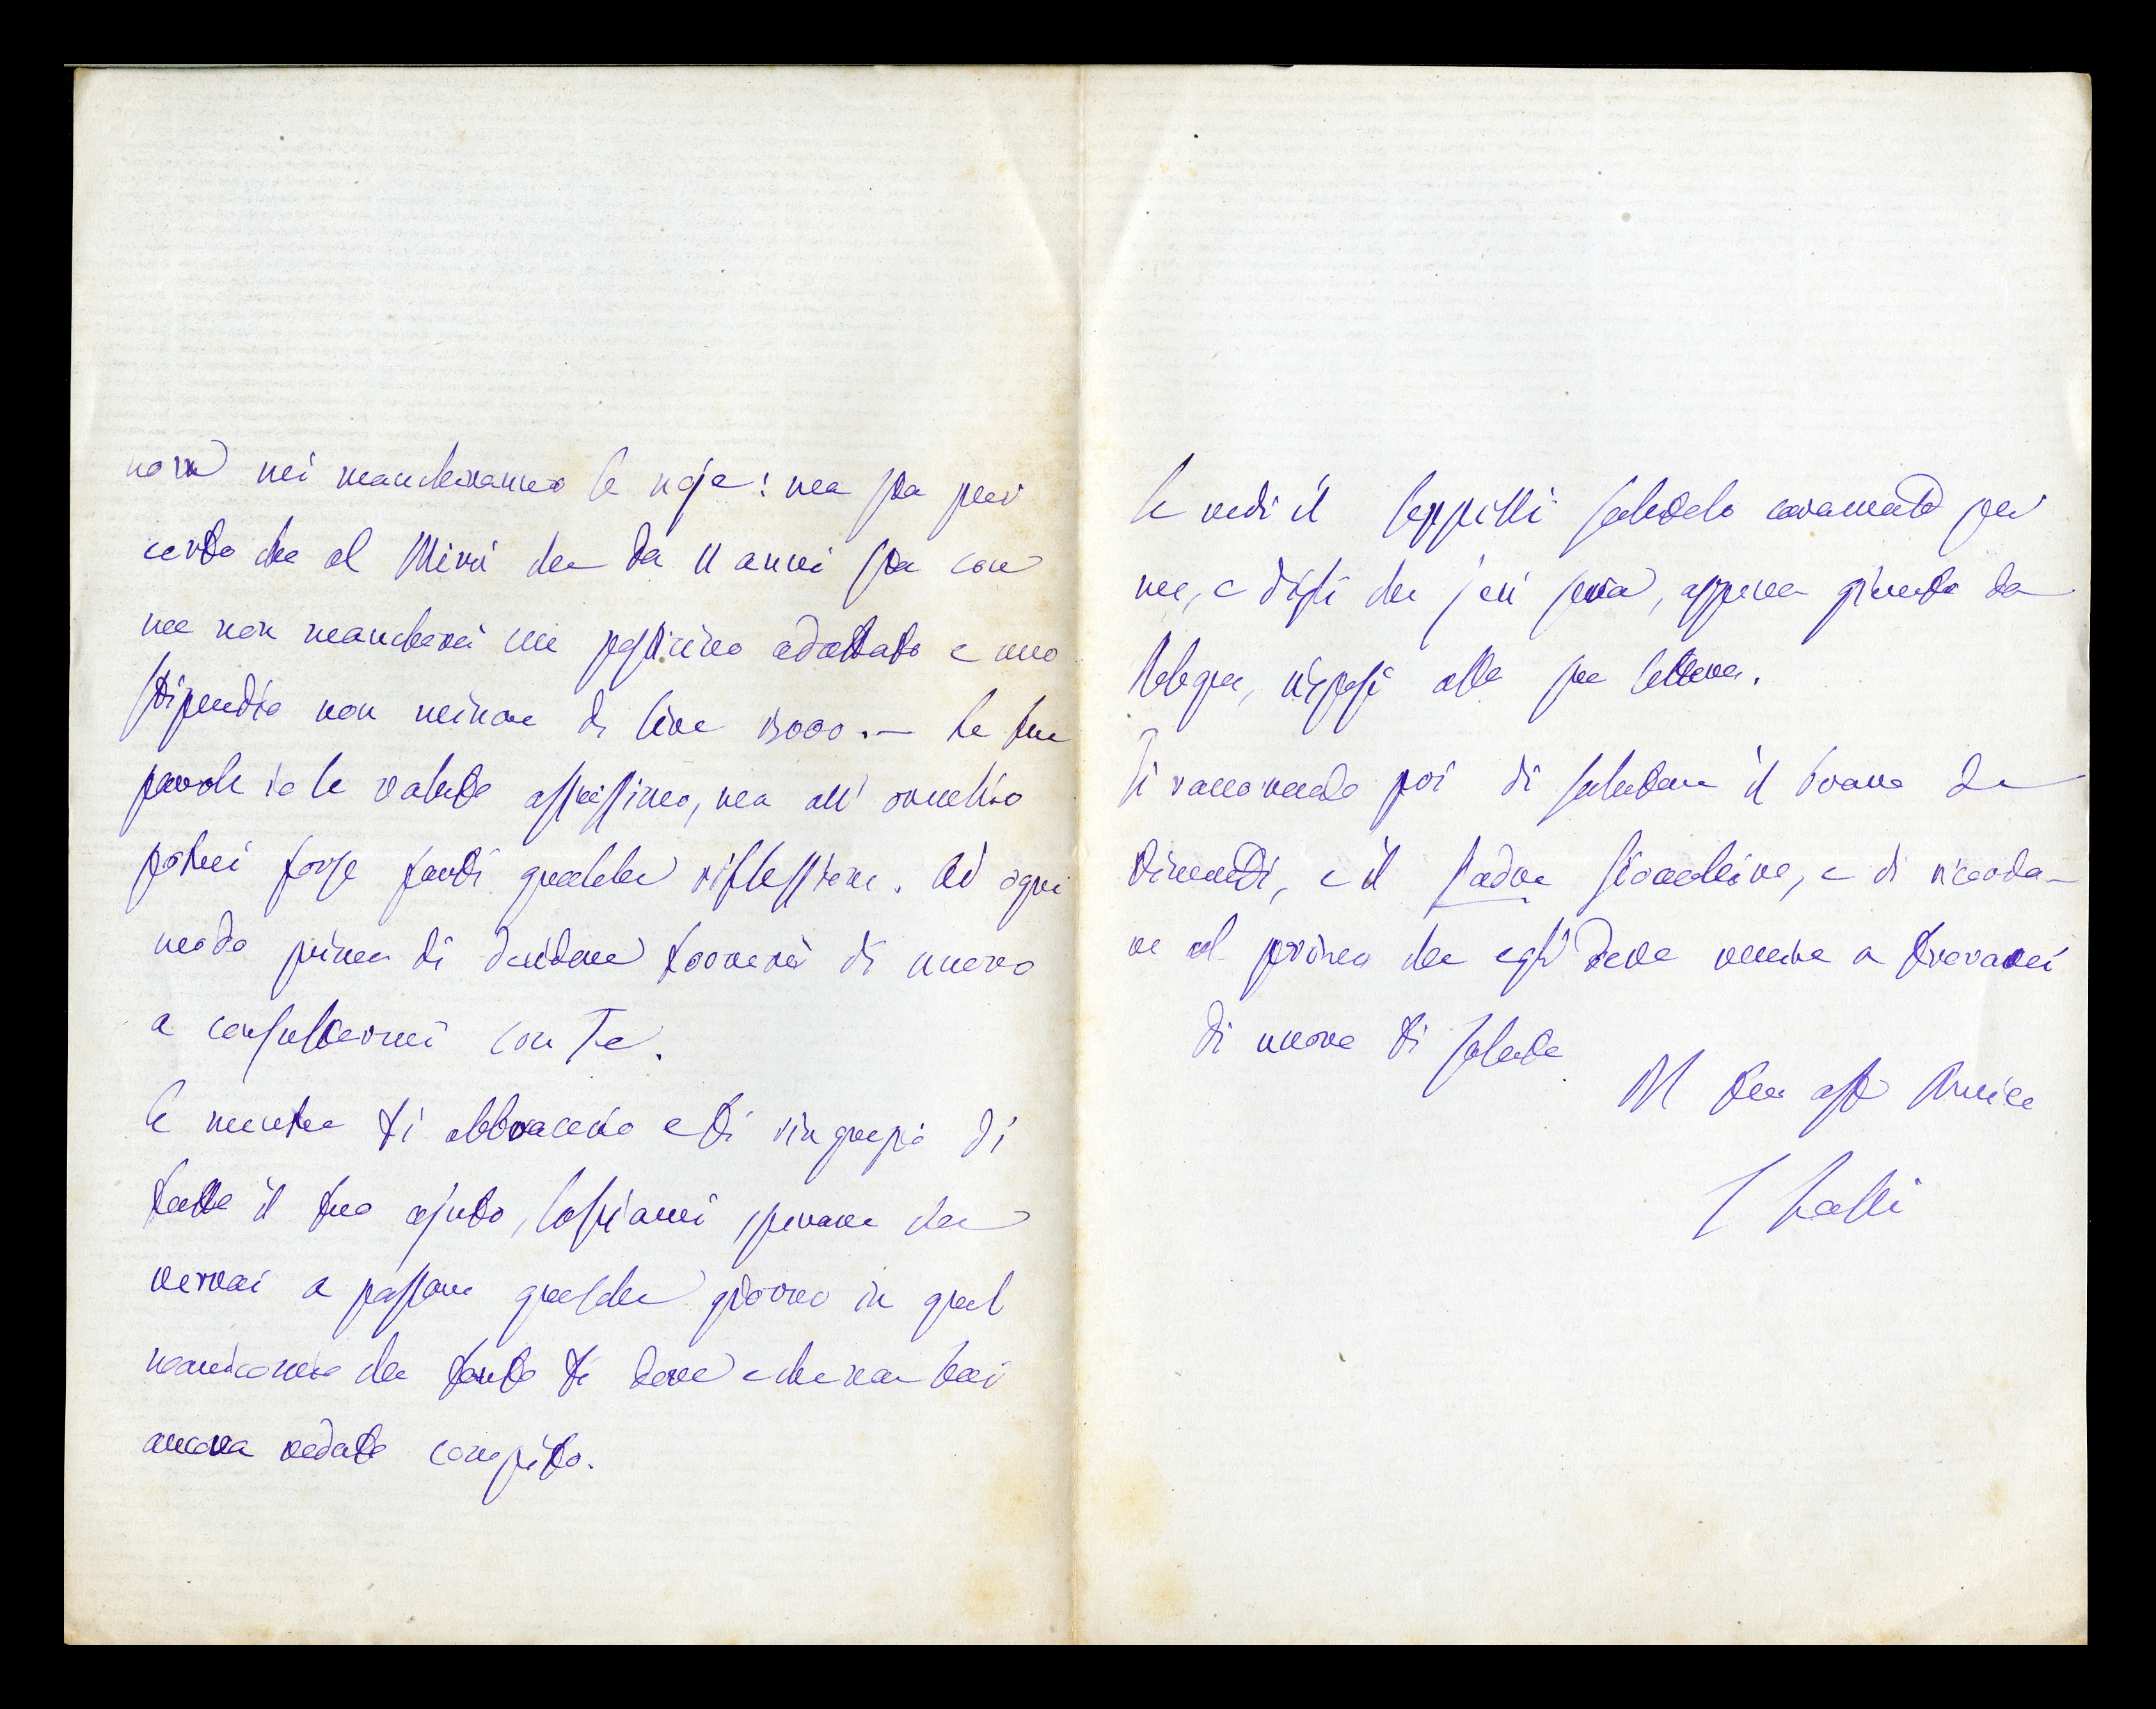 non mi mancheranno le noje: ma sta pur
certo che al Mirù che da 11 anni sta con
me non mancherà un posticino adattato e uno
stipendio non minore di lire 3000.— Le tue
parole io le valuto assaissimo, ma all'orecchio
potrei forse farti qualche riflessione. Ad ogni
modo prima di decidere tornerò di nuovo
a consultarmi con Te.
E mentre ti abbraccio e ti ringrazio di
tutto il tuo ajuto, lasciami sperare che
verrai a passare qualche giorno in quel
manicomio che tanto ti deve e che non hai
ancora veduto compito.
Se vedi il Seppilli salutalo caramente per
me, e digli che jeri sera, appena giunto da
Bologna, risposi alla sua lettera.
Ti raccomando poi di salutare il bravo
e il Padre e di ricorda-
re al primo che egli deve venire a trovarci
Di nuovo ti saluto
Il tuo aff Amico